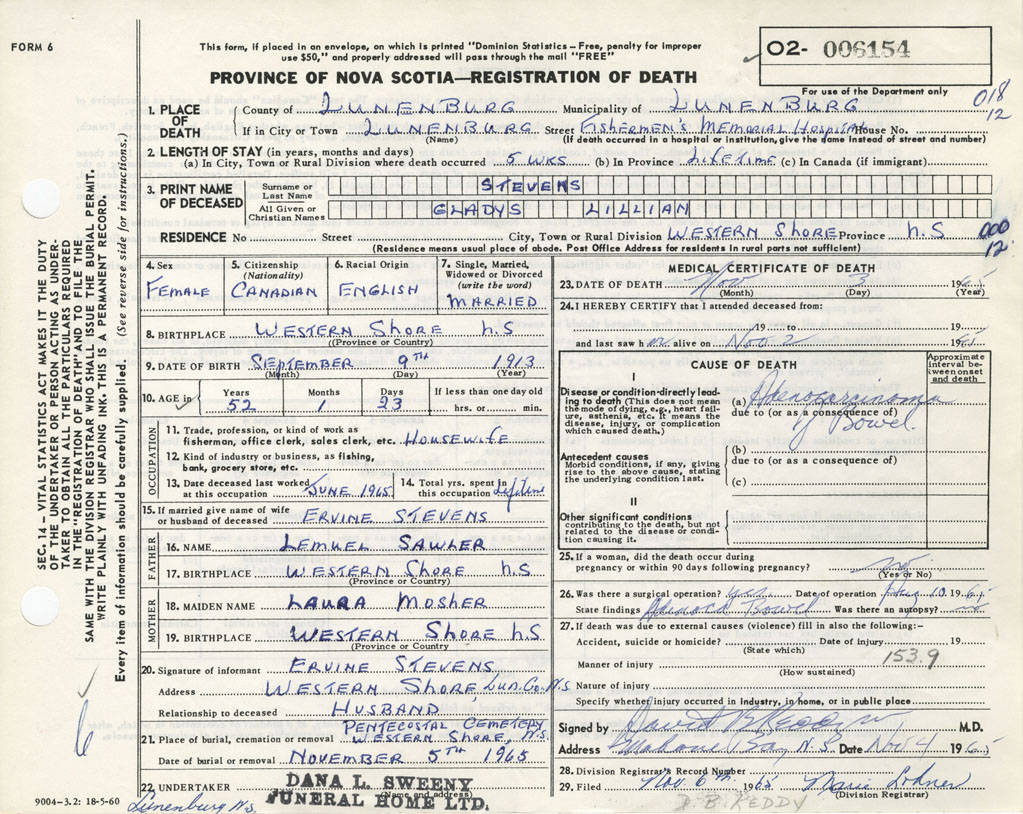 FORM 6
This form, if placed in an envelope, on which is printed "Dominion Statistics—Free, penalty for improper
use $50," and properly addressed will pass through the mail "FREE"
PROVINCE OF NOVA SCOTIA—REGISTRATION OF DEATH
O2- 006154
For use of the Department only
018
12
1. PLACE OF DEATH
County of LUNENBURG Municipality of LUNENBURG
If in City or Town LUNENBURG Street FISHERMEN'S MEMORIAL HOSPITAL House No.
(Name) (If death occurred in a hospital or institution, give the name instead of street and number)
2. LENGTH OF STAY (in years, months and days)
(a) In City, Town or Rural Division where death occurred 5 WKS (b) In Province LIFETIME (c) In Canada (if immigrant)
3. PRINT NAME OF DECEASED
Surname or Last Name STEVENS
All Given or Christian Names GLADYS LILLIAN
RESIDENCE No Street City, Town or Rural Division WESTERN SHORE Province N.S
000
12
(Residence means usual place of abode. Post Office Address for residents in rural parts not sufficient)
4. Sex FEMALE
5. Citizenship (Nationality) CANADIAN
6. Racial Origin ENGLISH
7. Single, Married, Widowed or Divorced (write the word) MARRIED
8. BIRTHPLACE WESTERN SHORE N.S
(Province or Country)
9. DATE OF BIRTH SEPTEMBER 9TH 1913
(Month) (Day) (Year)
10. AGE in Years 52 Months 1 Days 23 If less than one day old hrs. or min.
OCCUPATION
11. Trade, profession, or kind of work as
fisherman, office clerk, sales clerk, etc. HOUSEWIFE
12. Kind of industry or business, as fishing,
bank, grocery store, etc.
13. Date deceased last worked at this occupation JUNE 1965
14. Total yrs. spent in this occupation lifetime
15. If married give name of wife
or husband of deceased ERVINE STEVENS
FATHER
16. NAME LEMUEL SAWLER
17. BIRTHPLACE WESTERN SHORE N.S
(Province or Country)
MOTHER
18. MAIDEN NAME LAURA MOSHER
19. BIRTHPLACE WESTERN SHORE N.S
(Province or Country)
20. Signature of informant ERVINE STEVENS
Address WESTERN SHORE LUN. Co. N.S
Relationship to deceased HUSBAND
21. Place of burial, cremation or removal PENTECOSTAL CEMETERY
WESTERN SHORE, N.S.
Date of burial or removal NOVEMBER 5TH 1965
22. UNDERTAKER DANA L. SWEENY
FUNERAL HOME LTD.
(Name and address)
Lunenburg N.S.
9004-3.2: 18-5-60
MEDICAL CERTIFICATE OF DEATH
23. DATE OF DEATH Nov 3 1965
(Month) (Day) (Year)
24. I HEREBY CERTIFY that I attended deceased from:
19 to 19
and last saw h er alive on Nov 2 19
CAUSE OF DEATH
Approximate interval between onset and death
I
Disease or condition directly leading
to death (This does not mean
the mode of dying, e.g., heart failure,
asthenia, etc. It means the
disease, injury, or complication
which caused death.)
(a) Adenocarcinoma
due to (or as a consequence of)
of Bowel
Antecedent causes
Morbid conditions, if any, giving
rise to the above cause, stating
the underlying condition last.
(b)
due to (or as a consequence of)
(c)
II
Other significant conditions
contributing to the death, but not
related to the disease or condition
causing it.
25. If a woman, did the death occur during
pregnancy or within 90 days following pregnancy? no
(Yes or No)
26. Was there a surgical operation? yes Date of operation 10. 1965
State findings Bowel Was there an autopsy? no
27. If death was due to external causes (violence) fill in also the following:-
Accident, suicide or homicide? Date of injury 19
(State which)
153.9
Manner of injury
(How sustained)
Nature of injury
Specify whether injury occurred in industry, in home, or in public place
Signed by David B Keddy M.D.
Address Mahone Bay N.S. Date Nov 4 1965
28. Division Registrar's Record Number
29. Filed Nov. 6th 1965 Marie Lohnes
(Division Registrar)
D. B. KEDDY
SEC. 14—VITAL STATISTICS ACT MAKES IT THE DUTY
OF THE UNDERTAKER OR PERSON ACTING AS UNDERTAKER
TO OBTAIN ALL THE PARTICULARS REQUIRED
IN THE "REGISTRATION OF DEATH" AND TO FILE THE
SAME WITH THE DIVISION REGISTRAR WHO SHALL ISSUE THE BURIAL PERMIT.
WRITE PLAINLY WITH UNFADING INK. THIS IS A PERMANENT RECORD.
Every item of information should be carefully supplied. (See reverse side for instructions.)
6